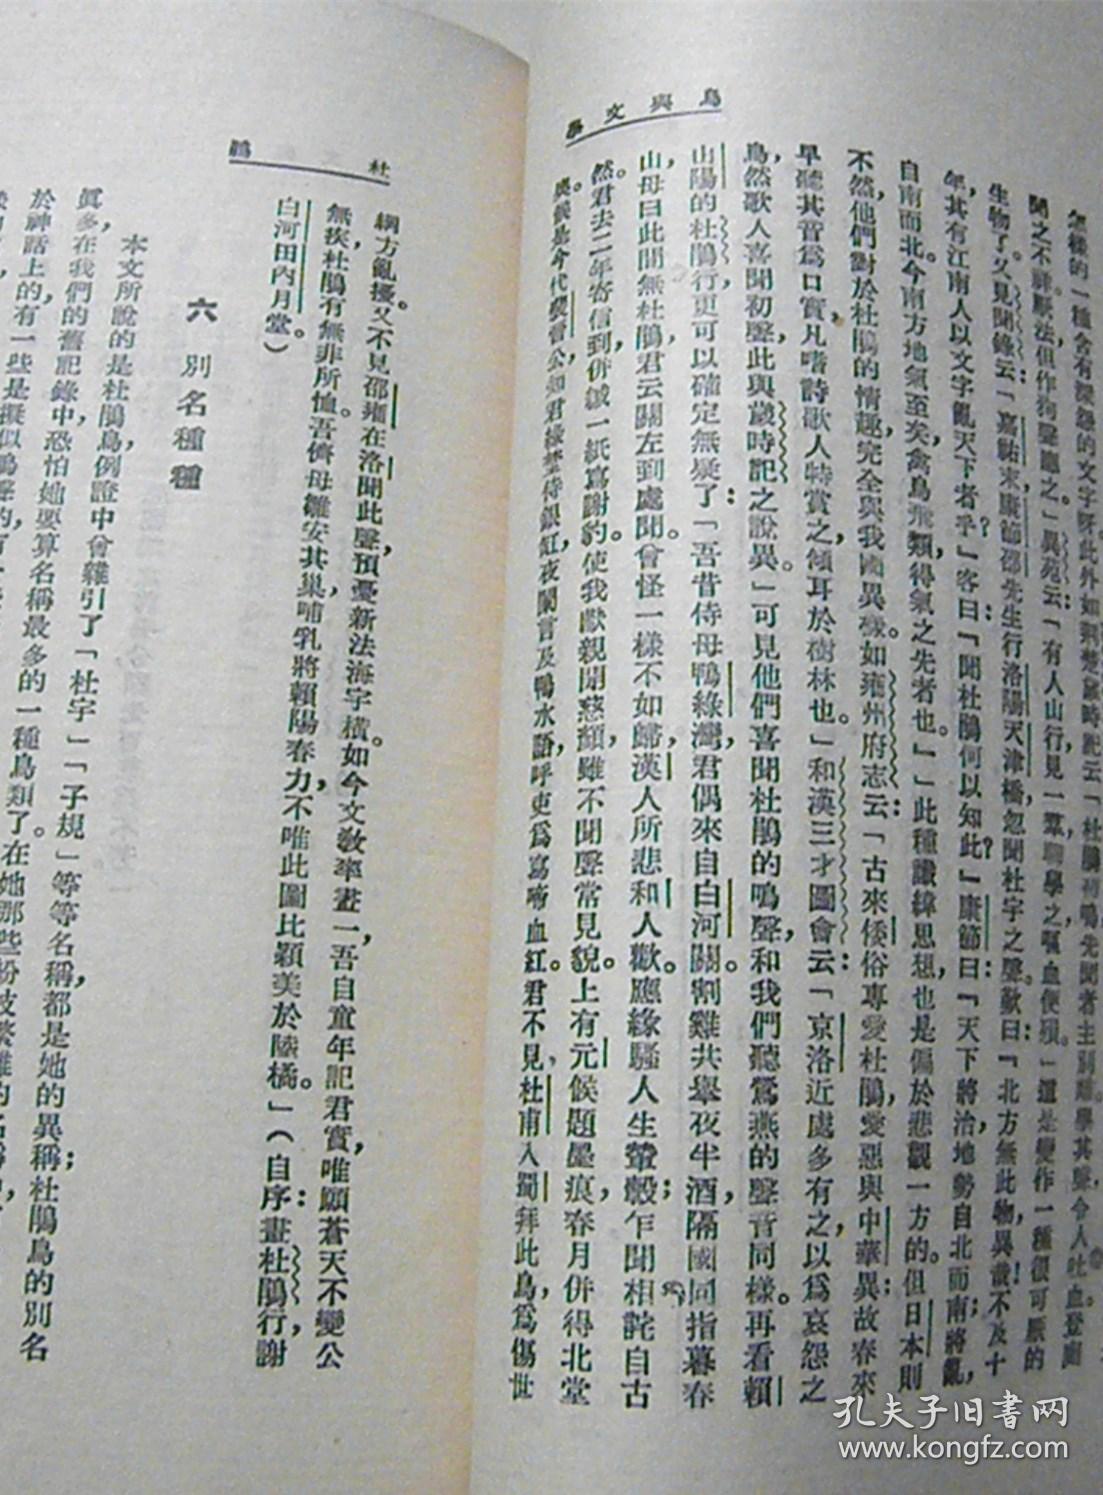 鳥與文學
怎樣的一種含有深怨的文字呀此外如荊楚歲時記云「杜鵑初鳴先聞者主別離學其聲令人吐血登廁
聞之不祥厭法但作狗聲應之。」異苑云「有人山行見一羣聊學之嘔血便殞。」這是變作一種很可厭的
生物了。又見聞錄云:「嘉祐末康節邵先生行洛陽天津橋忽聞杜宇之聲歎曰:『北方無此物異哉不及十
年,其有江南人以文字亂天下者乎?』客曰『聞杜鵑何以知此?』康節曰:『天下將治地勢自北而南;將亂,
自南而北。今南方地氣至矣,禽鳥飛類,得氣之先者也。』」此種讖緯思想,也是偏於悲觀一方的。但日本則
不然,他們對於杜鵑的情趣,完全與我國異樣。如雍州府志云:「古來倭俗專愛杜鵑,愛惡與中華異;故春來
早聽其音爲口實,凡嗜詩歌人特賞之,傾耳於樹林也。」和漢三才圖會云:「京洛近處多有之,以爲哀怨之
鳥,然歌人喜聞初聲,此與歲時記之說異。」可見他們喜聞杜鵑的鳴聲,和我們聽鶯燕的聲音同樣。再看賴
山陽的杜鵑行,更可以確定無疑了:「吾昔侍母鴨綠灣,君偶來自白河關。割雞共舉夜半酒,隔國同指暮春
山,母曰此間無杜鵑,君云關左到處聞。曾怪一樣不如歸,漢人所悲和人歡。應緣騷人生聲觳;乍聞相詫自古
然。君去二年寄信到,併緘一紙爲謝豹。使我獻親開慈顏,雖不聞聲常見貌。上有元侯題墨痕,春月併得北堂
侯是今代裴晉公,知君綠埜侍銀缸,夜闌言及鴨水語,呼吏爲寫啼血紅。君不見,杜甫入蜀拜此鳥,爲傷世
杜鵑
綱方亂擾。又不見邵雍在洛聞此聲,預憂新法海宇橫。如今文敎率畫一,吾自童年記君實,唯願蒼天不變公
無疾,杜鵑有無非所恤。吾儕母雛安其巢,哺乳將賴陽春力,不唯此圖比穎美於陸橘。」(自序畫杜鵑行,謝
白河田內月堂。)
六 別名種種
本文所說的是杜鵑鳥,例證中曾雜引了「杜宇」「子規」等等名稱,都是她的異稱;杜鵑鳥的別名
眞多,在我們的舊記錄中恐怕她要算名稱最多的一種鳥類了。在她那些
於神話上的,有一些是擬似鳴聲的,有
孔夫子旧书网
www.kongfz.com